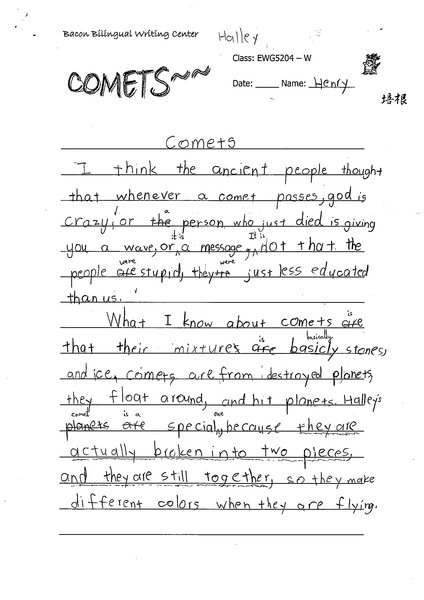 Bacon Bilingual Writing Center
Halley
Class: EWG5204 – W
COMETS~~
Date: ____ Name: Henry
培根
Comets
I think the ancient people thought
that whenever a comet passes, god is
crazy! or the a person who just died is giving
you a wave, or it is a message, It is not that the
people are were stupid, they're were just less educated
than us.
What I know about comets are is
that their mixtures are is basicly basically stones,
and ice, comets are from destroyed planets,
they float around, and hit planets. Halley's
planets comet are is a special one, because they are
actually broken into two pieces,
and they are still together, so they make
different colors when they are flying.